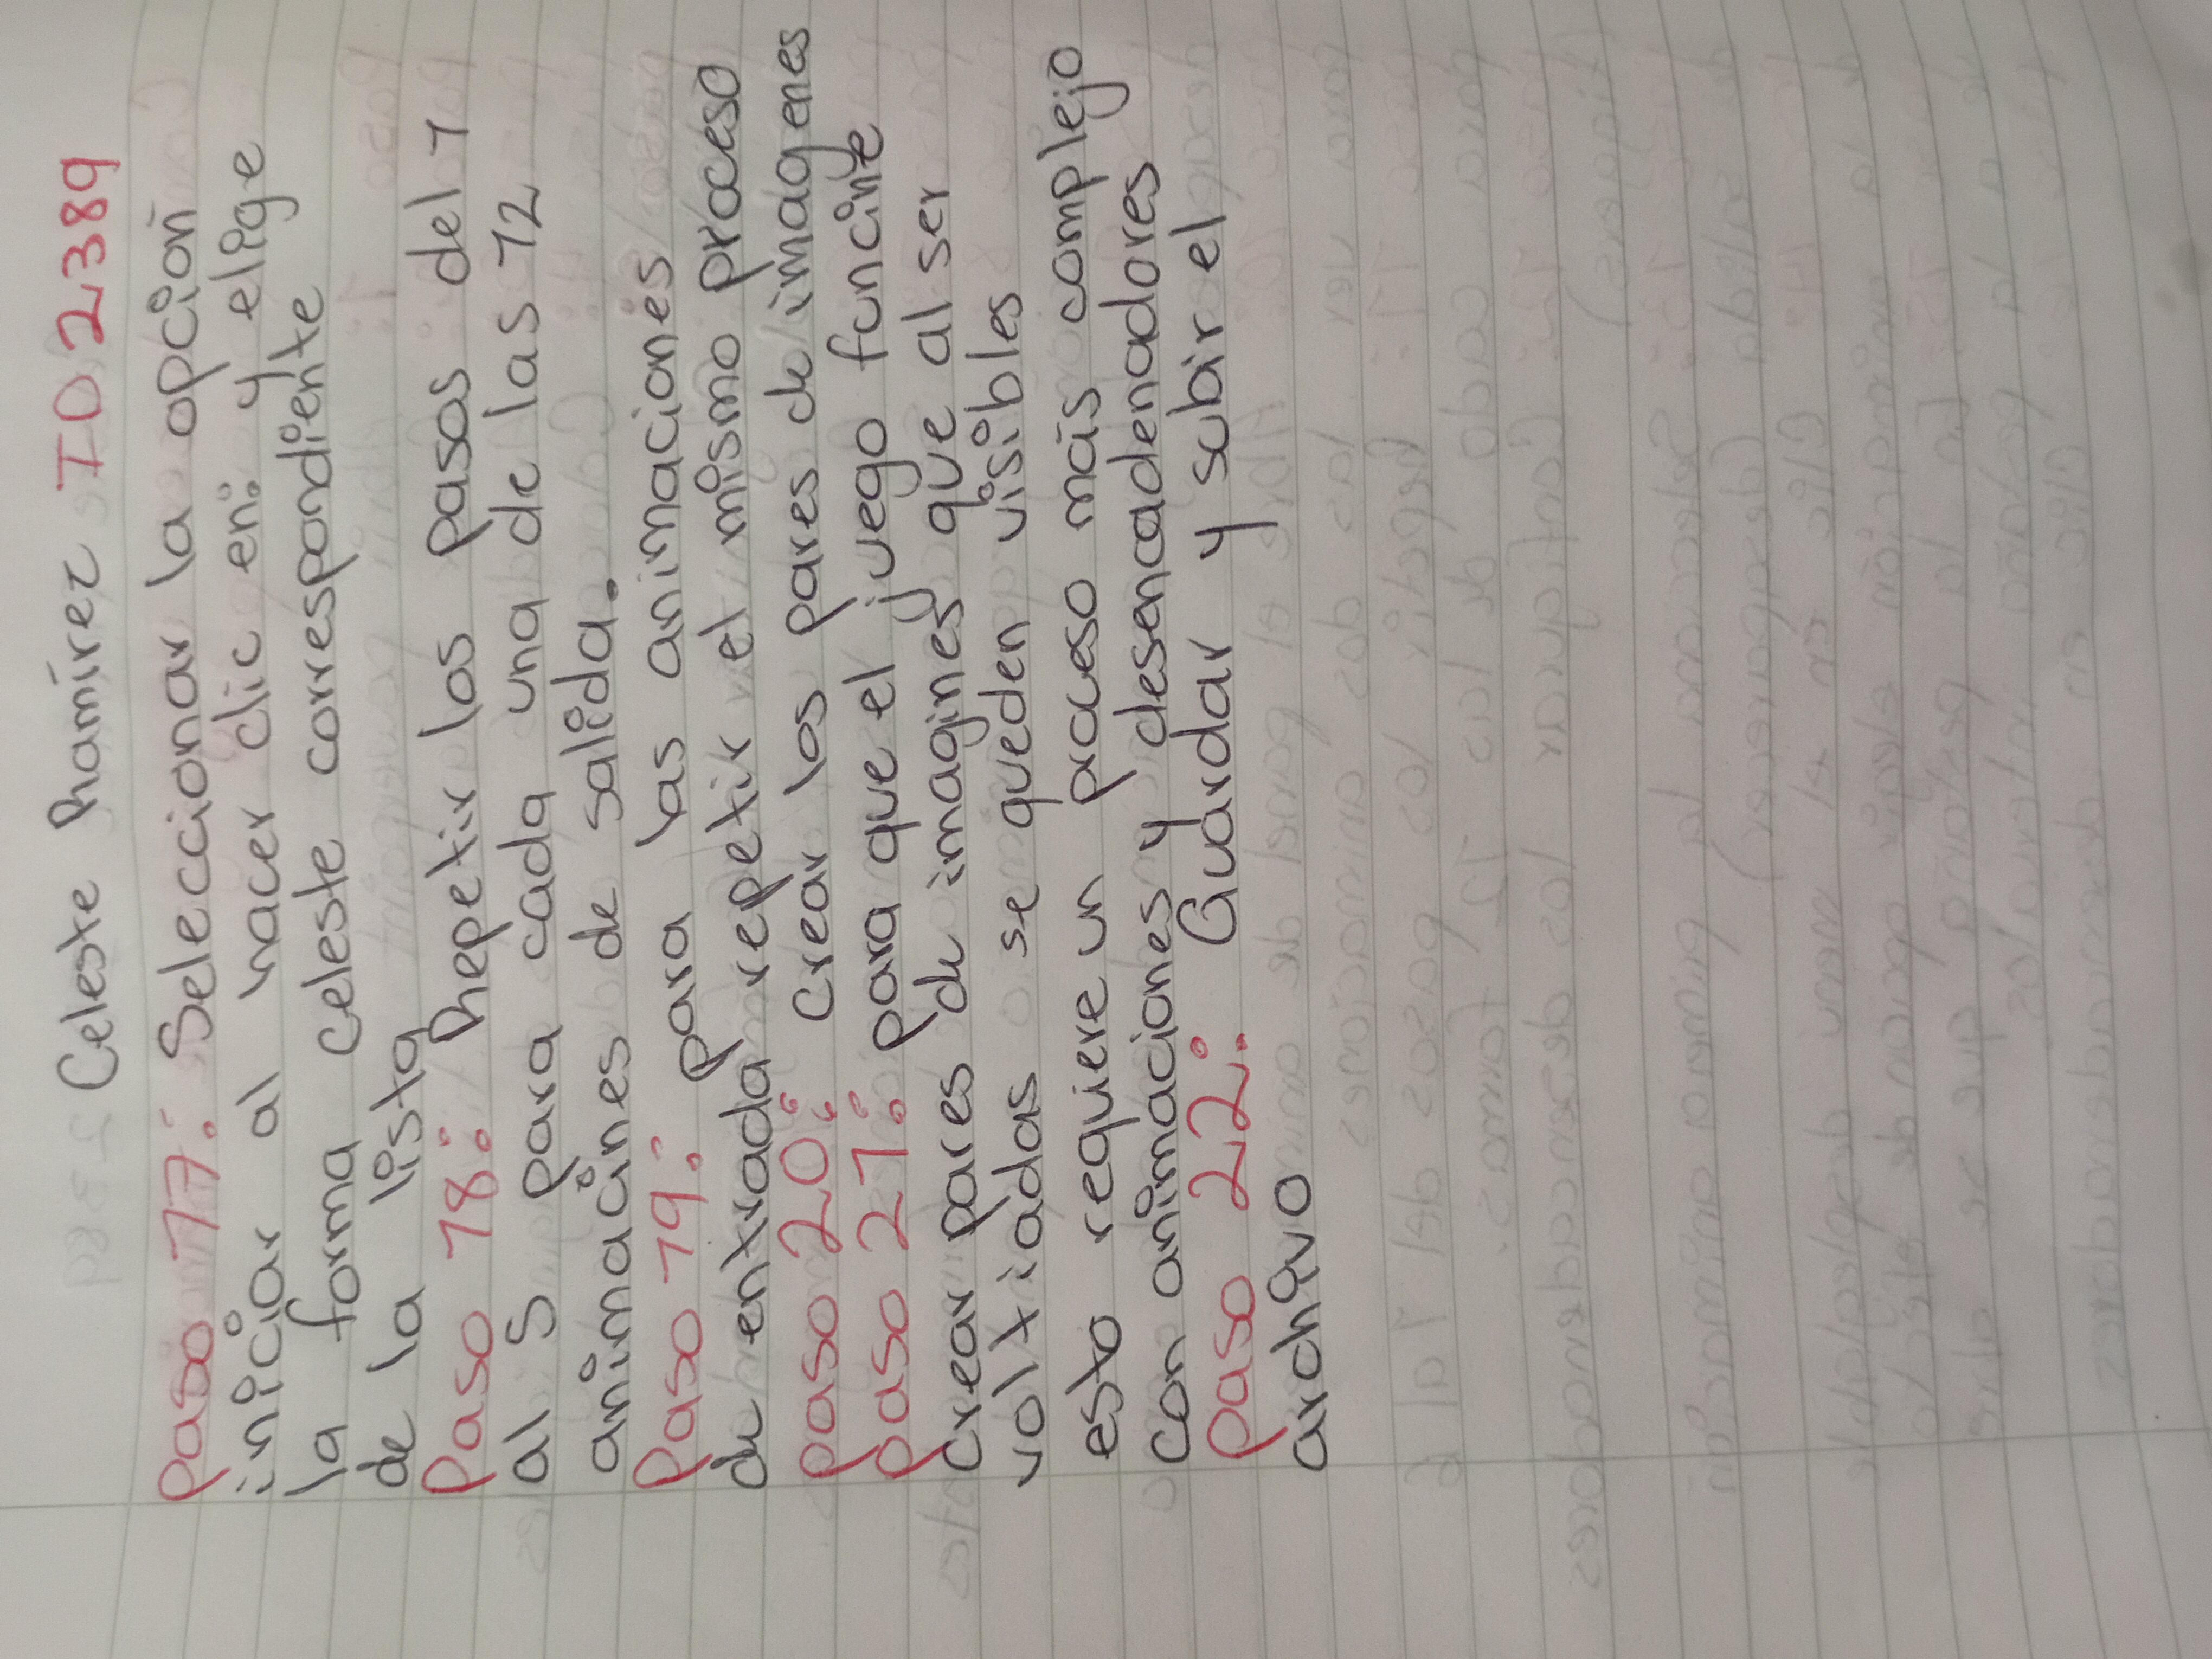 Celeste Ramírez ID 2389
Paso 17: Seleccionar la opción
iniciar al hacer clic en: y elige
la forma celeste correspondiente
de la lista
Paso 18: Repetir los pasos del 1
al 5 para cada una de las 12
animaciones de salida.
Paso 19: para las animaciones
de entrada repetir el mismo proceso
paso 20: crear los pares de imagenes
paso 21: para que el juego funcinte
crear pares de imagines que al ser
voltiadas se queden visibles
esto requiere un proceso más complejo
con animaciones y desencadenadores
paso 22: Guardar y subir el
archivo